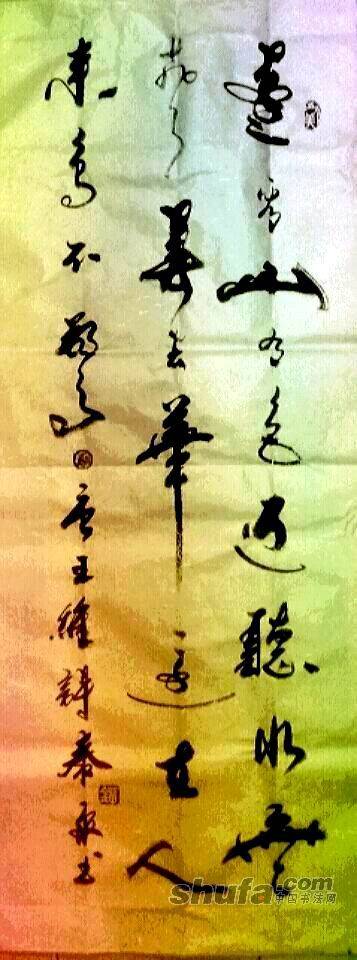 遠看山有色近聽水無
聲春去華還在人
來鳥不驚唐王維詩秦书
shufa.com
中国书法网